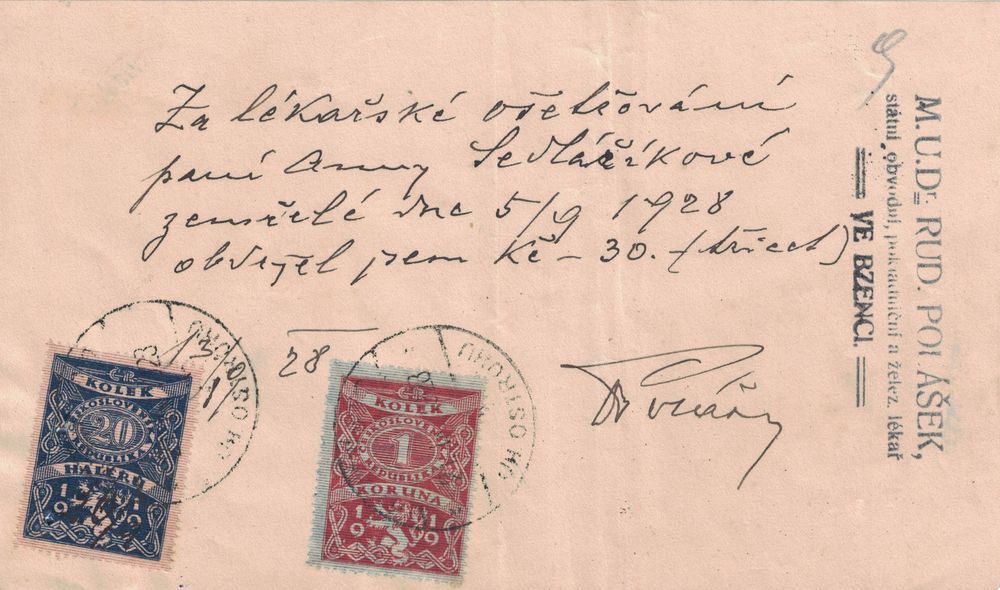 Za lékařské ošetřování
paní Anny Sedlářikové
zemřelé dne 5/9 1928
obdržel jsem Kč – 30. (třicet)
M.U.Dr. RUD. POLÁŠEK,
státní obvodní, pokladniční a želez. lékař
VE BZENCI.
28
ČR
KOLEK
ČESKOSLOVENSKÁ
20
REPUBLIKA
HALÉŘŮ
1919
ČR
KOLEK
ČESKOSLOVENSKÁ
1
REPUBLIKA
KORUNA
1919